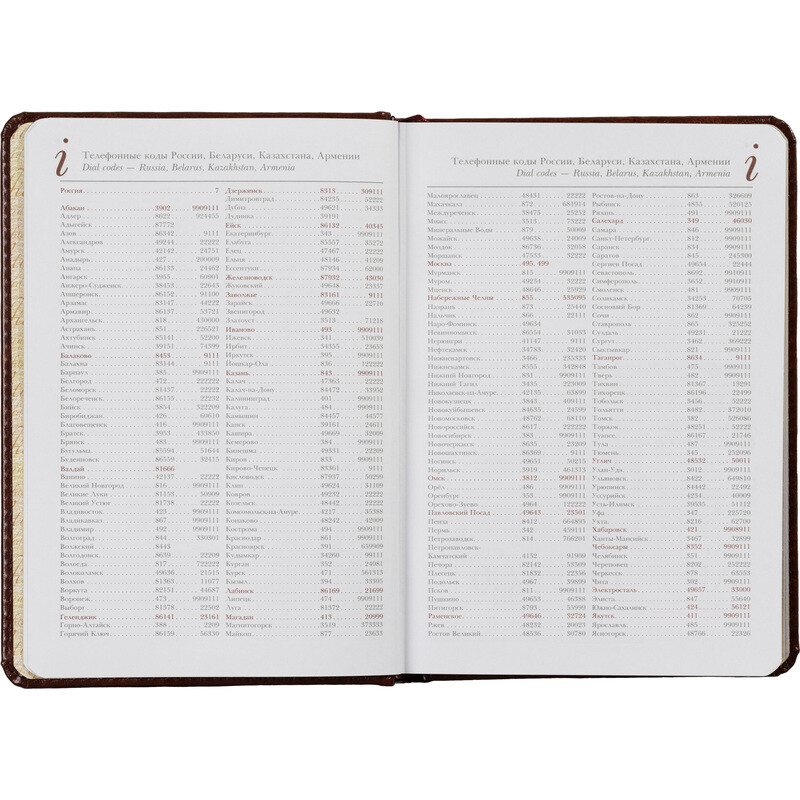 i
Телефонные коды России, Беларуси, Казахстана, Армении
Dial codes — Russia, Belarus, Kazakhstan, Armenia
Россия 7
Абакан 3902 9909111
Адлер 8622 924455
Адыгейск 87772
Азов 86342 9111
Александров 49244 22222
Амурск 42142 24751
Анадырь 427 200009
Анапа 86133 24462
Ангарск 3955 60001
Анжеро-Судженск 38453 22643
Апшеронск 86152 91100
Арзамас 83147 44222
Армавир 86137 53721
Архангельск 818 450000
Астрахань 851 226521
Ахтубинск 85141 52200
Ачинск 39151 74390
Балаково 8453 9111
Балахна 83144 9111
Барнаул 385 9909111
Белгород 472 222222
Беломорск 81437 22222
Белореченск 86155 22232
Бийск 3854 322209
Биробиджан 426 60610
Благовещенск 416 9909111
Братск 3953 433850
Брянск 483 9909111
Бугульма 85594 51644
Буденновск 86559 32415
Валдай 81666
Ванино 42137 22222
Великий Новгород 816 9909111
Великие Луки 81153 50909
Великий Устюг 81738 22222
Владивосток 423 9909111
Владикавказ 867 9909111
Владимир 492 9909111
Волгоград 844 330301
Волжский 8443
Волгодонск 8639 22209
Вологда 817 722222
Волоколамск 49636 21515
Волхов 81363 11077
Воркута 82151 44687
Воронеж 473 9909111
Выборг 81378 22502
Геленджик 86141 23161
Горно-Алтайск 388 2209
Горячий Ключ 86159 56330
Дзержинск 8313 309111
Димитровград 84235 52222
Дубна 49621 54333
Дудинка 39191
Ейск 86132 40345
Екатеринбург 343 9909111
Елабуга 85557 35272
Елец 47467 22222
Ельня 48146 41209
Ессентуки 87934 62000
Железноводск 87932 43030
Жуковский 49648 23337
Заволжье 83161 9111
Зарайск 49666 22710
Звенигород 49632
Златоуст 3513 71218
Иваново 493 9909111
Ижевск 341 510039
Ирбит 34355 23653
Иркутск 395 9909111
Йошкар-Ола 836 122222
Казань 843 9909111
Калач 47363 22222
Калач-на-Дону 84472 33932
Калининград 401 9909111
Калуга 484 9909111
Камышин 84457 54577
Канск 39161 24611
Кашира 49669 32009
Кемерово 384 9909111
Кинешма 49331 2209
Киров 833 9909111
Кирово-Чепецк 83361 9111
Кисловодск 87937 50299
Клин 49624 31109
Ковров 49232 22222
Козельск 48442 22222
Комсомольск-на-Амуре 4217 33388
Конаково 48242 42009
Кострома 494 9909111
Краснодар 861 9909111
Красноярск 391 659909
Кудымкар 34260 99111
Курсан 352 24081
Курск 471 561313
Кызыл 394 33305
Лабинск 86169 21699
Липецк 474 9909111
Луга 81372 22222
Магадан 413 20999
Магнитогорск 3519 373333
Майкоп 877 23633
i
Телефонные коды России, Беларуси, Казахстана, Армении
Dial codes — Russia, Belarus, Kazakhstan, Armenia
Малоярославец 48431 22222
Махачкала 872 681914
Междуреченск 38475 23252
Миасс 3513 73222
Минеральные Воды 879 50009
Можайск 49638 24009
Моздок 86736 32058
Моршанск 47533 32222
Москва 495, 499
Мурманск 815 9909111
Муром 49234 32222
Мценск 48646 25929
Набережные Челны 855 535095
Назрань 873 25440
Нальчик 866 22111
Наро-Фоминск 49634
Невинномысск 86554 31033
Нерюнгри 41147 9111
Нефтекамск 34783 32420
Нижневартовск 3466 235333
Нижнекамск 8555 342848
Нижний Новгород 831 9909111
Нижний Тагил 3435 223009
Николаевск-на-Амуре 42135 63899
Новокузнецк 3843 409111
Новокуйбышевск 84635 24599
Новомосковск 48762 68110
Новороссийск 8617 222222
Новосибирск 383 9909111
Новочеркасск 8635 23209
Новошахтинск 86369 9111
Ногинск 49651 50215
Норильск 3919 461313
Омск 3812 9909111
Орёл 486 9909111
Оренбург 353 9909111
Орехово-Зуево 4964 122222
Павловский Посад 49643 23501
Пенза 8412 664895
Пермь 342 459111
Петрозаводск 814 766201
Петропавловск-
Камчатский 4152 91909
Печора 82142 53509
Плесецк 81832 22356
Подольск 4967 39899
Псков 811 9909111
Пушкино 49653 46388
Пятигорск 8793 55999
Раменское 49646 32724
Ржев 48232 20023
Ростов Великий 48536 30780
Ростов-на-Дону 863 326609
Рыбинск 4855 520125
Рязань 491 9909111
Салехард 349 46030
Самара 846 9909111
Санкт-Петербург 812 9909111
Саранск 834 9909111
Саратов 845 243300
Сергиев Посад 49654 22444
Севастополь 8692 9910911
Симферополь 3652 9910911
Смоленск 481 9909111
Соликамск 34253 70705
Сосновый Бор 81369 64239
Сочи 862 9909111
Ставрополь 865 325252
Суздаль 49231 21222
Сургут 3462 369222
Сыктывкар 821 9909111
Таганрог 8634 9111
Тамбов 475 9909111
Тверь 482 9909111
Тихвин 81367 13291
Тихорецк 86196 22499
Тобольск 3456 52222
Тольятти 8482 372910
Томск 382 526086
Торжок 48251 52222
Туапсе 86167 21746
Тула 487 9909111
Тюмень 345 252096
Углич 48532 50011
Улан-Удэ 3012 9909111
Ульяновск 8422 649810
Урюпинск 84442 22492
Уссурийск 4234 40009
Усть-Илимск 39535 51112
Уфа 347 225720
Ухта 8216 62700
Хабаровск 421 9908911
Ханты-Мансийск 3467 32890
Чебоксары 8352 9909111
Челябинск 351 9909111
Череповец 8202 252222
Черкесск 878 63553
Чита 302 9909111
Электросталь 49657 33000
Элиста 847 55640
Южно-Сахалинск 424 56121
Якутск 411 9909111
Ярославль 485 9909111
Ясногорск 48766 22326